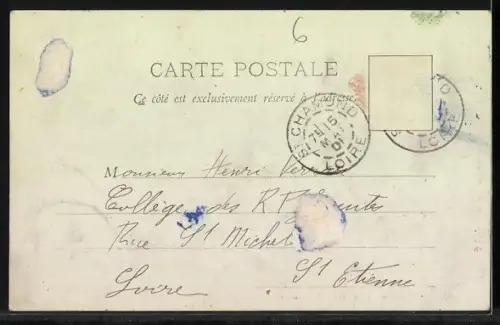 6
CARTE POSTALE
Ce côté est exclusivement réservé à l'adresse
ST CHAMOND
15
LOIRE
LOIRE
Monsieur Henri
Collège des R P Jésuites
Rue St Michel
Loire St Etienne